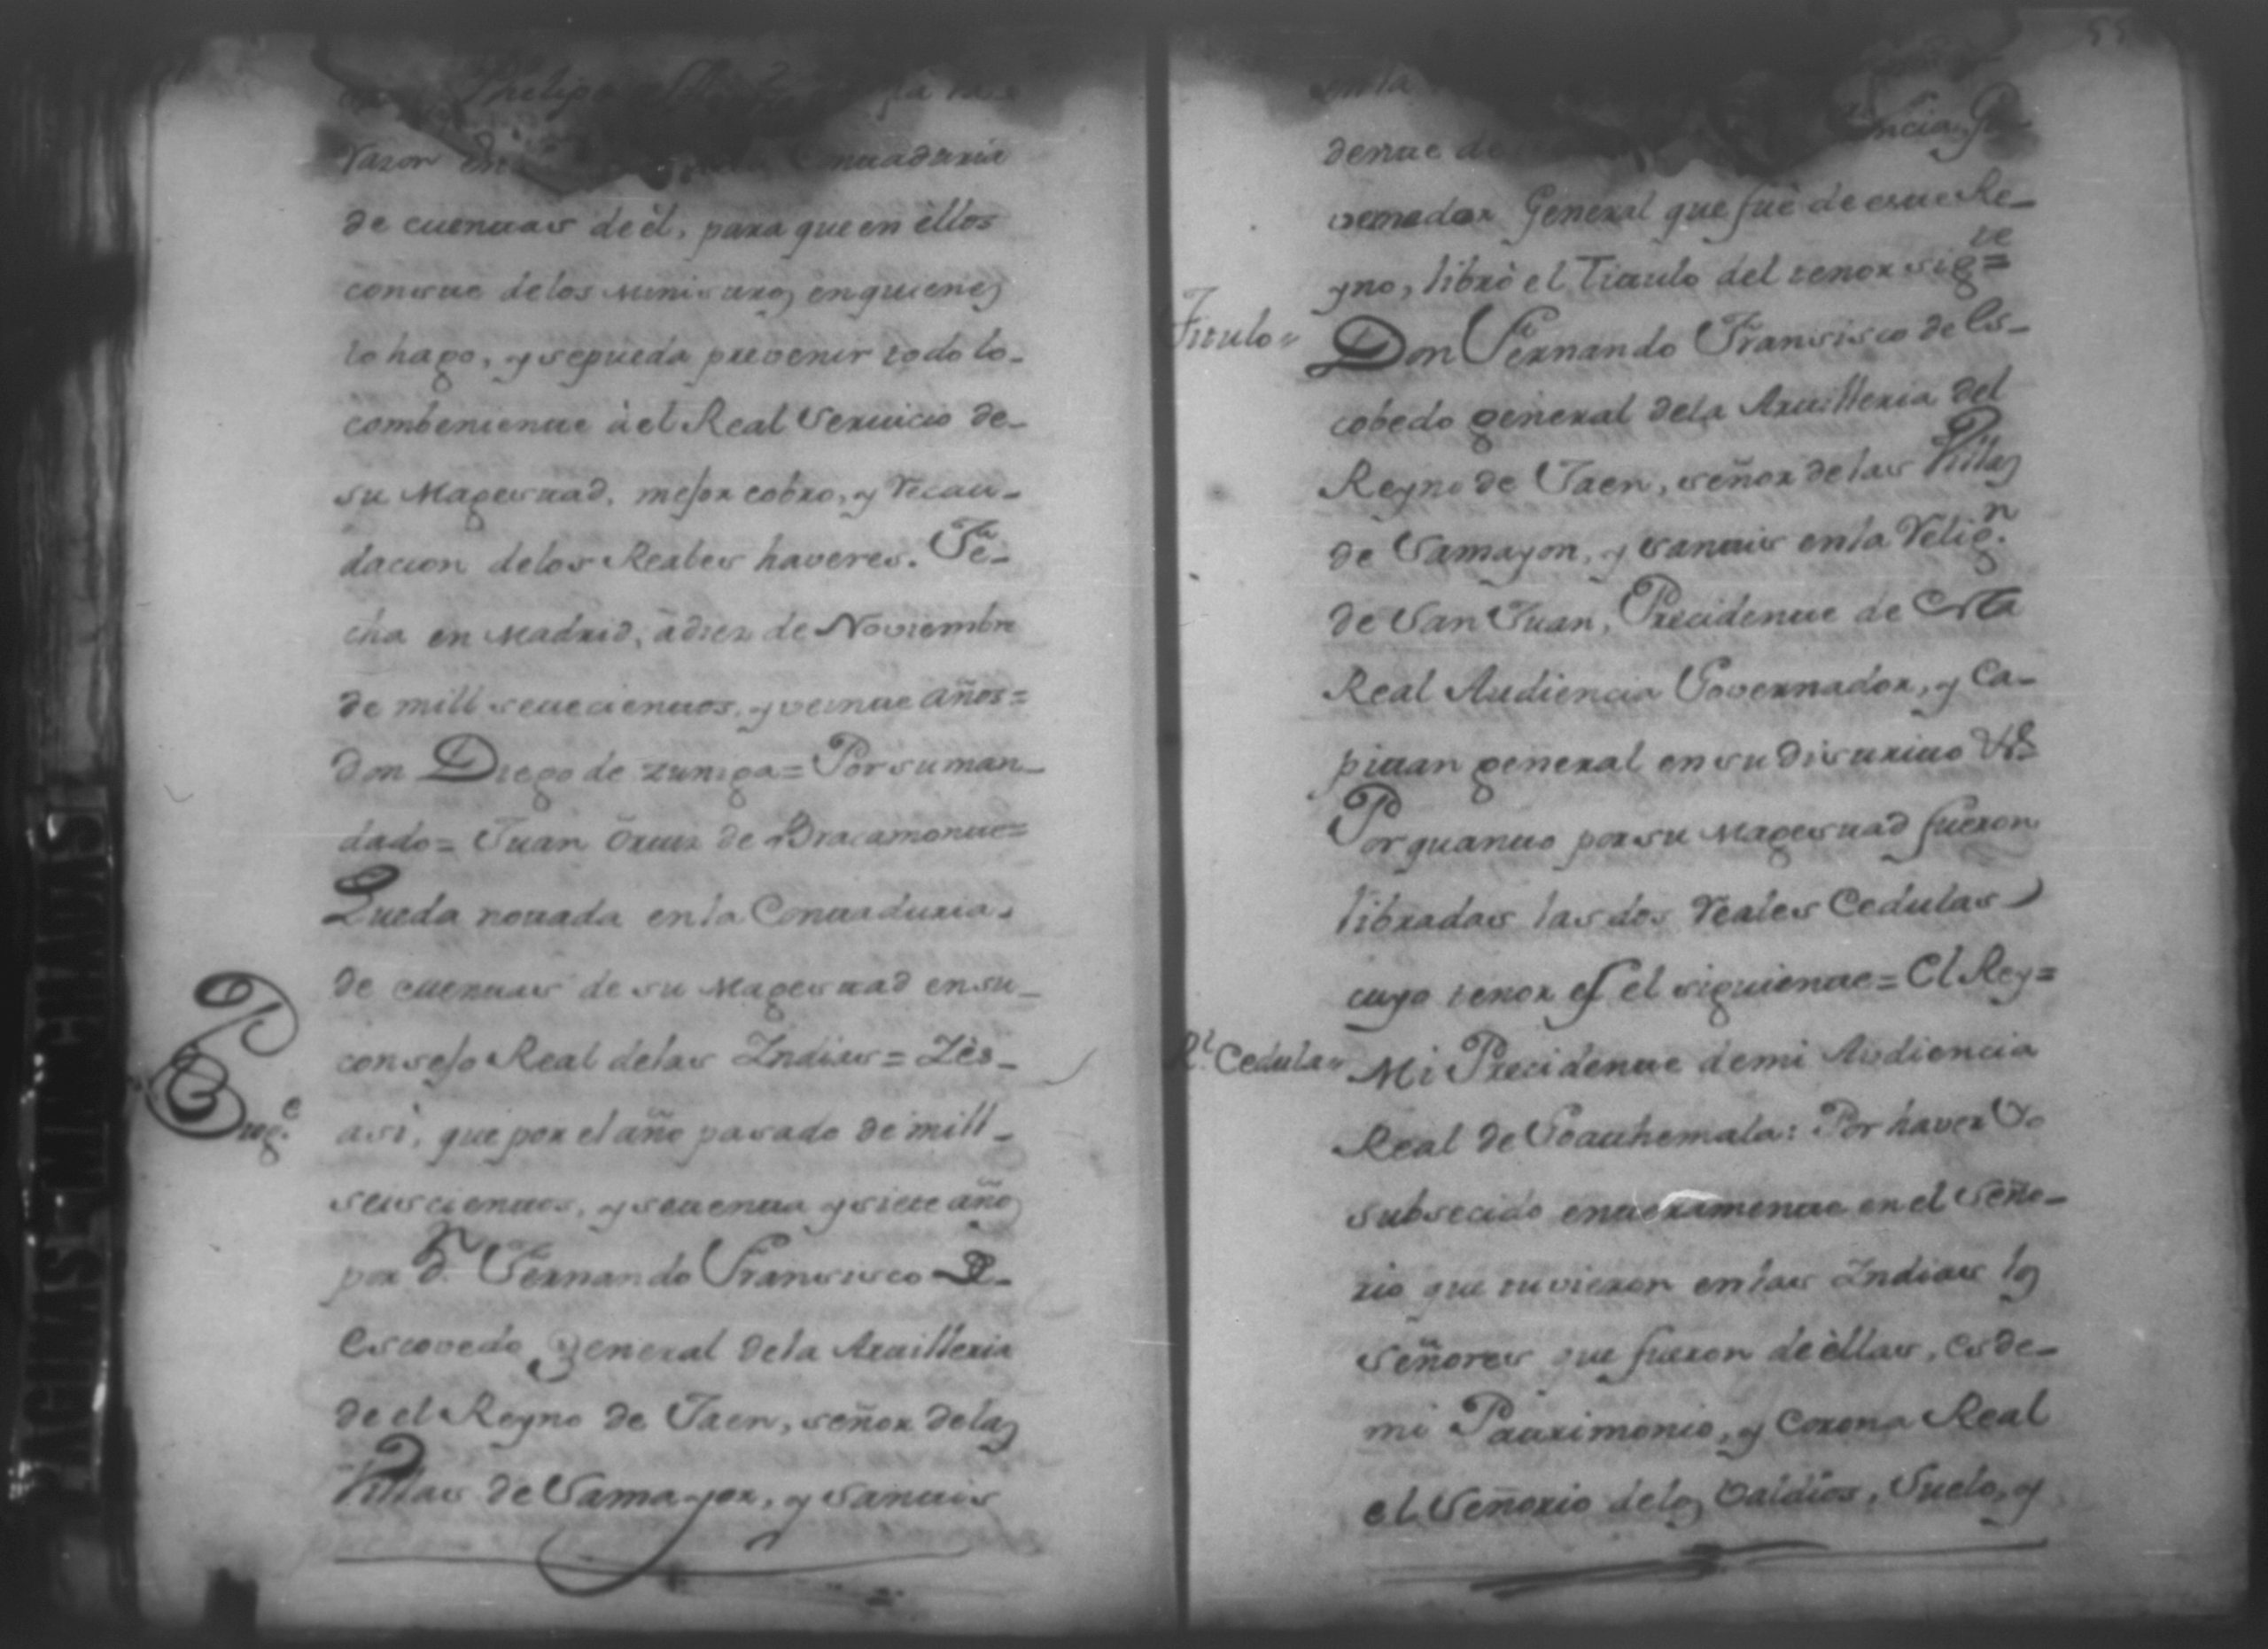 Phelipe
razon Contaduria
de cuentas de èl, para que en èllos
conste delos Ministros en quienes
lo hago, y sepueda prevenir todo lo-
combeniente àel Real Servicio de-
su Magestad, mejor cobro, y recau-
dacion delos Reales haveres. Fe-
cha en Madrid, à diez de Noviembre
de mill setecientos, y veinte años=
don Diego de zuniga= Por su man-
dado= Juan Ortiz de Bracamonte=
Queda notada enla Contaduria
de cuentas de su Magestad en su-
consejo Real delas Indias= Iès-
Prog.e
asi, que por el año pasado de mill-
seiscientos, y setenta y siete años
por d.n Fernando Francisco De-
Escovedo general dela Artilleria
de el Reyno de Jaen, señor delas
Villas de Samayon, y Santis
55
dente de
vernador General que fuè de este Re-
yno, librò el Titulo del tenor sig.te=
Titulo=
Don Fernando Francisco de Es-
cobedo general dela Artilleria del
Reyno de Jaen, señor delas Villas
de Samayon, y Santis enla Relig.n
de San Juan, Precidente de Esta
Real Audiencia Governador, y Ca-
pitan general en su distrito &a
Por quanto por su Magestad fueron
libradas las dos reales Cedulas
cuyo tenor es el siguiente= El Rey=
R.l Cedula=
Mi Precidente demi Audiencia
Real de Goathemala: Por haver Yo
subsecido enteramente en el Seño-
rio que tuvieron enlas Indias los
Señores que fueron de èllas, es de-
mi Patrimonio, y Corona Real
el Señorio delos Valdios, Suelo, y